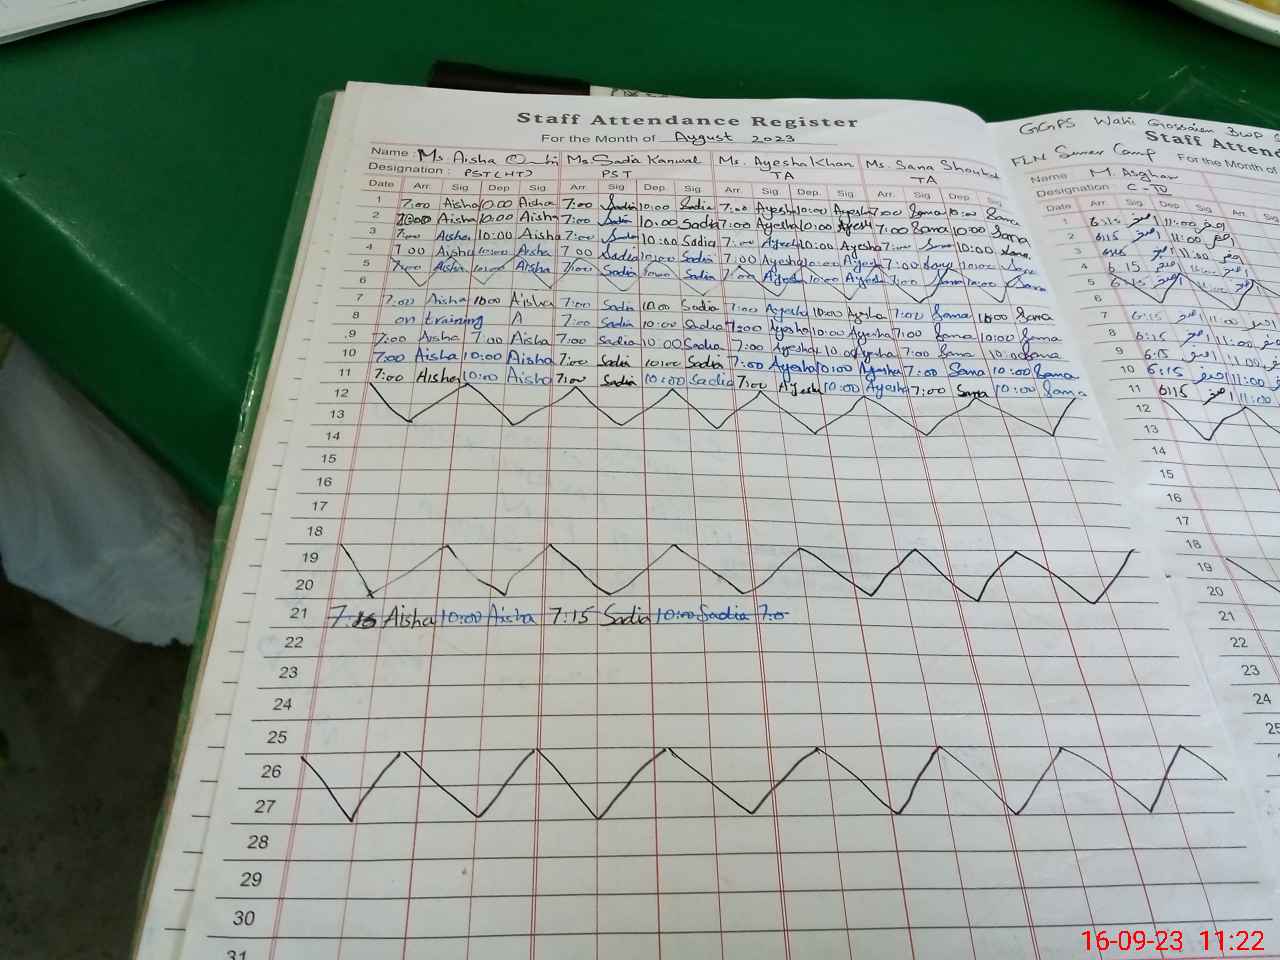 Staff Attendance Register
For the Month of August 2023
Name : Ms. Aisha Ms. Sadia Kanwal Ms. Ayesha Khan Ms. Sana Shoukat
Designation : PST (HT) PST TA TA
Date Arr. Sig. Dep. Sig. Arr. Sig. Dep. Sig. Arr. Sig. Dep. Sig. Arr. Sig. Dep. Sig.
1 7:00 Aisha 10:00 Aisha 7:00 Sadia 10:00 Sadia 7:00 Ayesha 10:00 Ayesha 7:00 Sana 10:00 Sana
2 Aisha 10:00 Aisha 7:00 Sadia 10:00 Sadia 7:00 Ayesha 10:00 Ayesha 7:00 Sana 10:00 Sana
3 7:00 Aisha 10:00 Aisha 7:00 Sadia 10:00 Sadia 7:00 Ayesha 10:00 Ayesha 7:00 Sana 10:00 Sana
4 7 00 Aisha 10:00 Aisha 7 00 Sadia 10:00 Sadia 7:00 Ayesha 10:00 Ayesha 7:00 Sana 10:00 Sana
5 7:00 Aisha 10:00 Aisha 7:00 Sadia 10:00 Sadia 7:00 Ayesha 10:00 Ayesha 7:00 Sana 10:00 Sana
6
7 7:00 Aisha 10:00 Aisha 7:00 Sadia 10:00 Sadia 7:00 Ayesha 10:00 Ayesha 7:00 Sana 10:00 Sana
8 on training A 7:00 Sadia 10:00 Sadia 7:00 Ayesha 10:00 Ayesha 7:00 Sana 10:00 Sana
9 7:00 Aisha 7:00 Aisha 7:00 Sadia 10:00 Sadia 7:00 Ayesha 10:00 Ayesha 7:00 Sana 10:00 Sana
10 7:00 Aisha 10:00 Aisha 7:00 Sadia 10:00 Sadia 7:00 Ayesha 10:00 Ayesha 7:00 Sana 10:00 Sana
11 7:00 Aisha 10:00 Aisha 7:00 Sadia 10:00 Sadia 7:00 Ayesha 10:00 Ayesha 7:00 Sana 10:00 Sana
12
13
14
15
16
17
18
19
20
21 7:15 Aisha 10:00 Aisha 7:15 Sadia 10:00 Sadia 7:0
22
23
24
25
26
27
28
29
30
31
GGPS Wahi
Staff Attend
FLN Summer Camp For the Month of
Name : M. Asghar
Designation :
Date Arr. Sig. Dep. Sig. Arr. Sig.
1 6:15 11:00
2 6:15 11:00
3 11:00
4 6:15 11:00
5 6:15 11:00
6
7 6:15 11:00
8 6:15 11:00
9 6:15 11:00
10 6:15 11:00
11 6:15 11:00
12
13
14
15
16
17
18
19
20
21
22
23
24
25
16-09-23 11:22